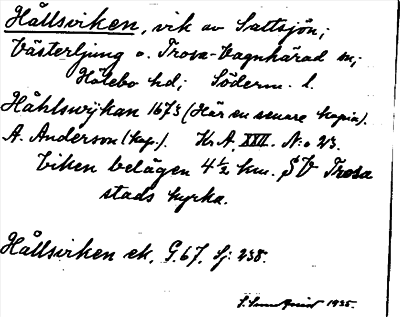 Hållsviken, vik av Saltsjön;
Västerljung o. Trosa-Vagnhärad sn;
Hölebo hd; Söderm. l.
Håhlswÿkan 1673 (Här en senare kopia).
A. Anderson (kop.). Kr. A. XXII. N:o 23.
Viken belägen 4½ km. SV Trosa
stads kyrka.
Hållsviken ek. G.67. Sj: 238.
1935.